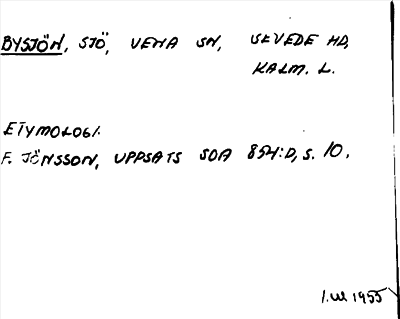 BYSJÖN, SJÖ, VENA SN, SEVEDE HD,
KALM. L.
ETYMOLOGI.
F. JÖNSSON, UPPSATS SOA 854:D, S. 10.
1955